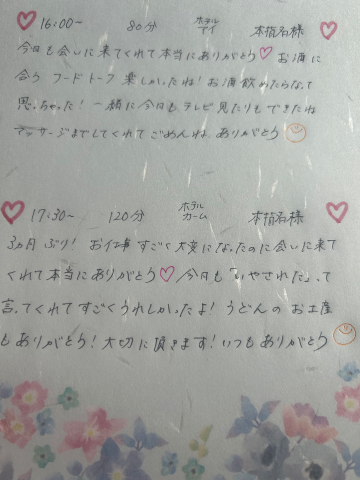 ♡ 16:00~ 80分 ホテルマイ 本指名様 ♡
今日も会いに来てくれて本当にありがとう♡ お酒に
合う フードトーク 楽しかったね! お酒飲めたらなって
思っちゃった! 一緒に今日もテレビ見たりもできたね
マッサージまでしてくれて ごめんね ありがとう
♡ 17:30~ 120分 ホテルカーム 本指名様 ♡
3ヵ月ぶり! お仕事すごく大変になったのに会いに来て
くれて本当にありがとう♡ 今日も「いやされた」って
言ってくれてすごくうれしかったよ! うどんのお土産
もありがとう! 大切に頂きます! いつもありがとう